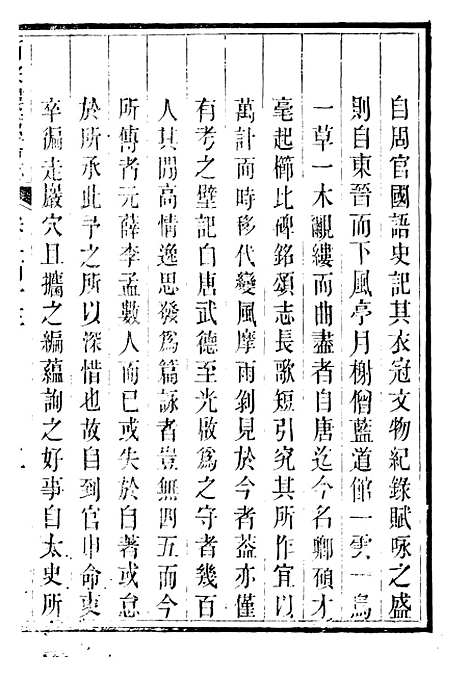 自周官國語史記其衣冠文物紀錄賦詠之盛
則自東晉而下風亭月榭僧藍道館一雲一鳥
一草一木覼縷而曲盡者自唐迄今名卿碩才
毫起櫛比碑銘頌志長歌短引究其所作宜以
萬計而時移代變風摩雨剝見於今者葢亦僅
有考之壁記自唐武德至光啟爲之守者幾百
人其閒高情逸思發爲篇詠者豈無四五而今
所傳者元薛李孟數人而已或失於自著或怠
於所承此予之所以深惜也故自到官申命吏
卒徧走巖穴且攟之編蘊詢之好事自太史所